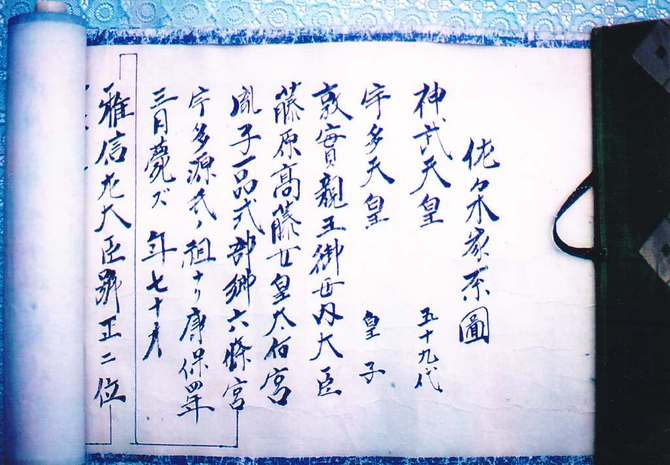 佐々木家系圖
神武天皇 五十九代
宇多天皇 皇子
敦實親王御母内大臣
藤原高藤女皇太后宮
胤子一品式部卿六條宮
宇多源氏ノ祖ナリ康保四年
三月薨ズ 年七十才
雅信左大臣號正二位